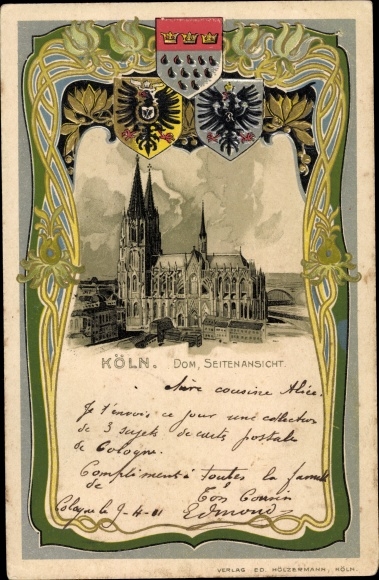 KÖLN. DOM, SEITENANSICHT.
chère cousine Alice.
Je t'envois ce jour une collection
de 3 sujets de carte postale
de Cologne.
Compliment à toutes la famille
de Ton Cousin
Cologne le 9-4-01 Edmond
VERLAG ED. HÖLZERMANN, KÖLN.